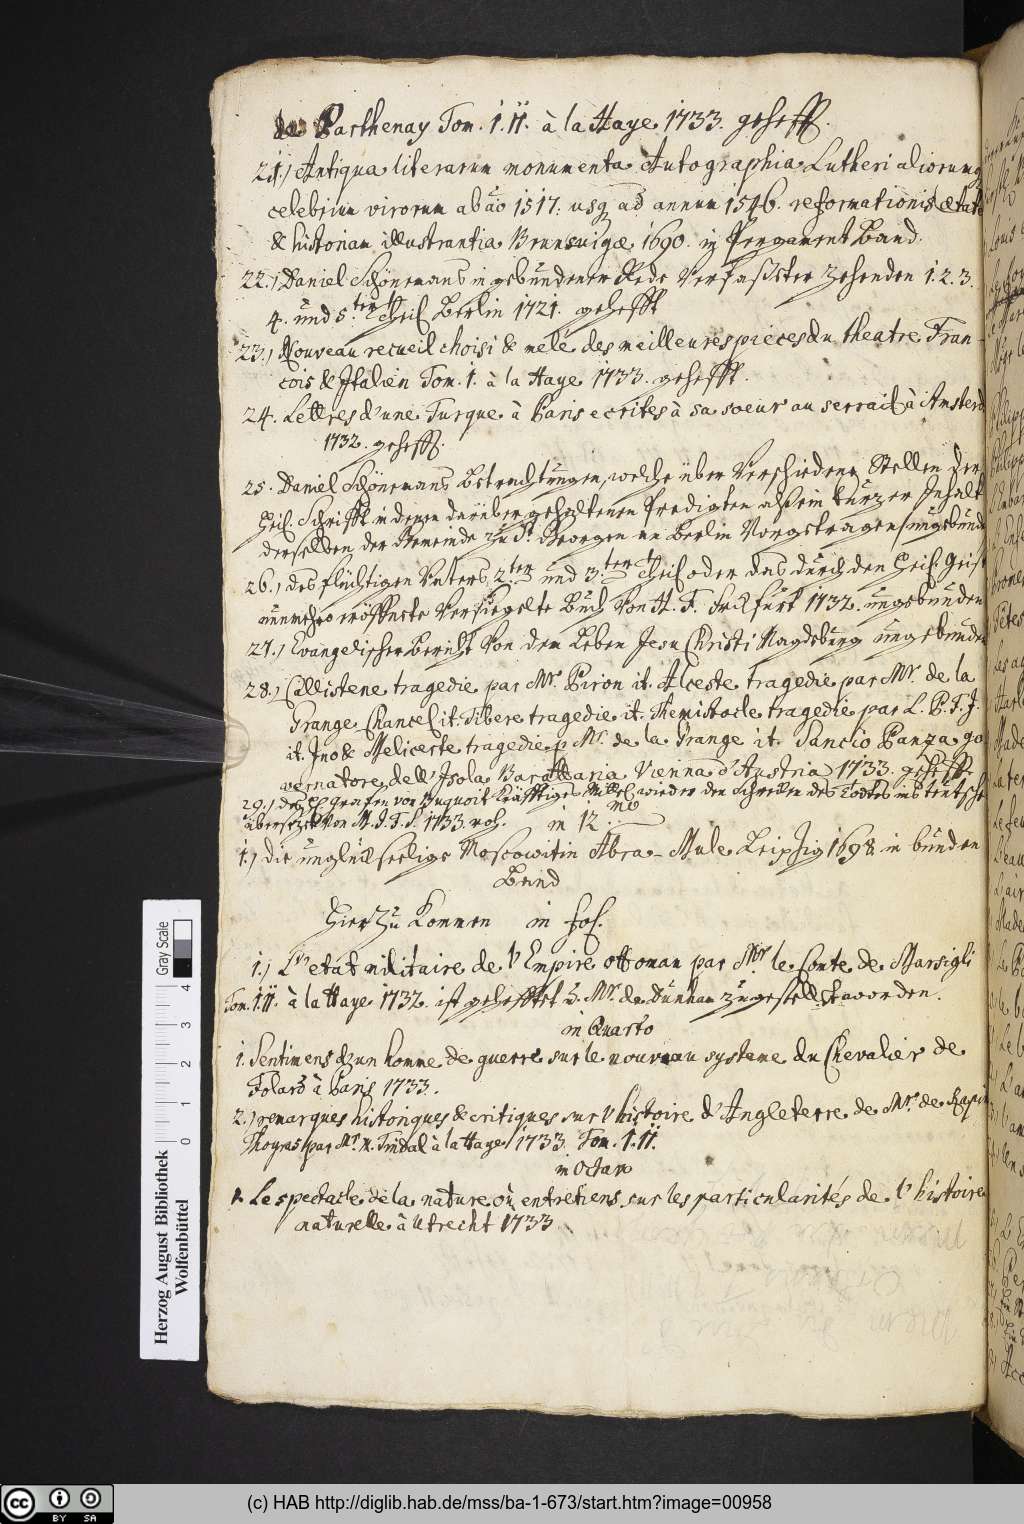 de Parthenay Tom. I. II. à la Haye 1733. gehefft.
21.) Antiqua literarum monumenta Autographia Lutheri aliorumq
celebrium virorum ab ao 1517. usq ad annum 1546. reformationis ætatē
& historiam illustrantia Brunsuigæ 1690. in Pergament Band.
22.) Daniel Schönemans in gebundener Rede Verfaßster Zehenden 1. 2. 3.
4. und 5.ter Theil Berlin 1721. gehefft
23.) Nouveau recueil choisi & melé des meilleures pieces du theatre Fran-
cois & Italien Tom. I. à la Haye 1733. gehefft.
24. Lettres d'une Turque à Paris ecrites à sa soeur au serrail à Amsterd
1732. gehefft.
25. Daniel Schönemans Betrachtungen, welche über Verschiedene Stellen der
Heil. Schrifft in denen darüber gehaltenen Predigten als ein kurzer Inhalt
derselben der Gemeinde zu St. Georgen in Berlin Vorgetragen ungebund
26.) des flüchtigen Paters 2.ter und 3.ter Theil oder das durch den Heil. Geist
nunmehro eröffnete Versiegelte Buch Von H. F. Frckfurt 1732. ungebunden
27.) Evangelischer Bericht Von dem Leben Jesu Christi Magdeburg ungebunden
28.) Callistene tragedie par Mr. Piron it. Alceste tragedie par Mr. de la
Grange Chancel it. Tibere tragedie it. Themistocle tragedie par L. P. F. J.
it. Ino & Melicerte tragedie p Mr. de la Grange it. Sancio Panza go
vernatore dell' Isola Barattaria Vienna d'Austria 1733. gehefft.
29.) des H. Grafen von Buquoit Kräfftiges Mittel wieder den Schrecken des Todtes ins Teutsche
übersezet Von M. J. F. S. 1733. roh.
in 12mo
1.) die unglückseelige Moscowitin Abra-Mule Leipzig 1698. in bunden
Band
Hierzu Kommen in fol.
1.) L'etat militaire de l'Empire ottoman par Mr. le Conte de Marsigli
Tom. I. II. à la Haye 1732. ist gehefftet u. Mr. de Dunhau zugestellet worden.
in Quarto
1. Sentimens d'un homme de guerre sur le nouveau systeme du Chevalier de
Folard à Paris 1733.
2.) remarques historiques & critiques sur l'histoire d'Angleterre de Mr. de Rapin
Thoyras par Mr. N. Tindal à la Haye 1733. Tom. I. II.
in Octav
1. Le spectacle de la nature où entretiens sur les particularités de l'histoire
naturelle à Utrecht 1733
Herzog August Bibliothek
Wolfenbüttel
0 1 2 3 4
Gray Scale
(c) HAB http://diglib.hab.de/mss/ba-1-673/start.htm?image=00958
cc BY SA